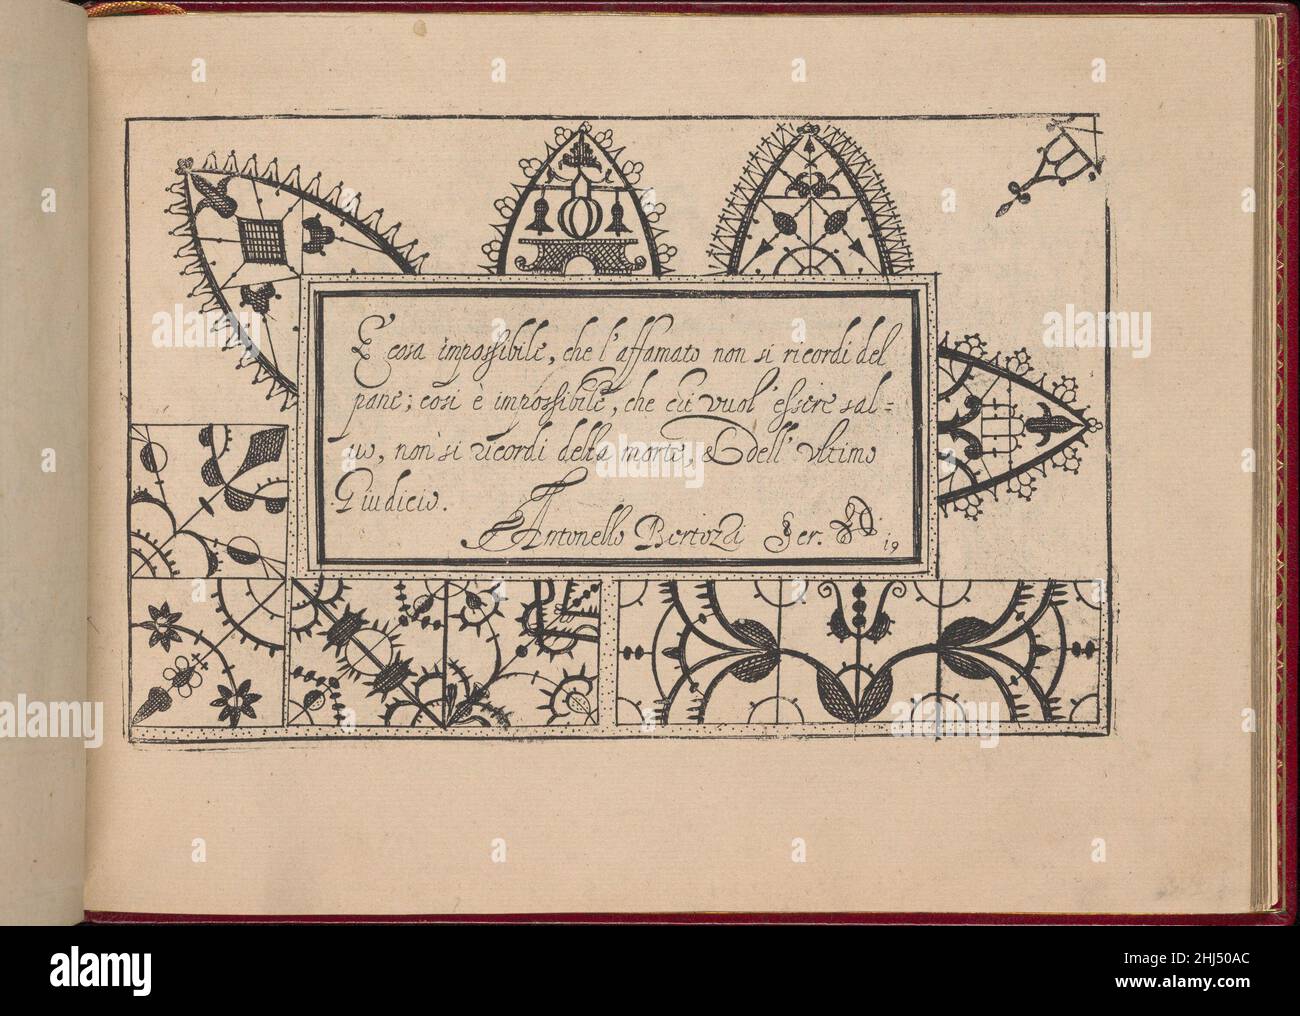 E cosa impossibile, che l'affamato non si ricordi del
pane; cosi è impossibile, che chi vuol'essere sal=
uo, non si ricordi della morte, & dell'vltimo
Giudicio.
Antonello Bertozzi Ser.
19
alamy
Image ID: 2HJ50AC
www.alamy.com